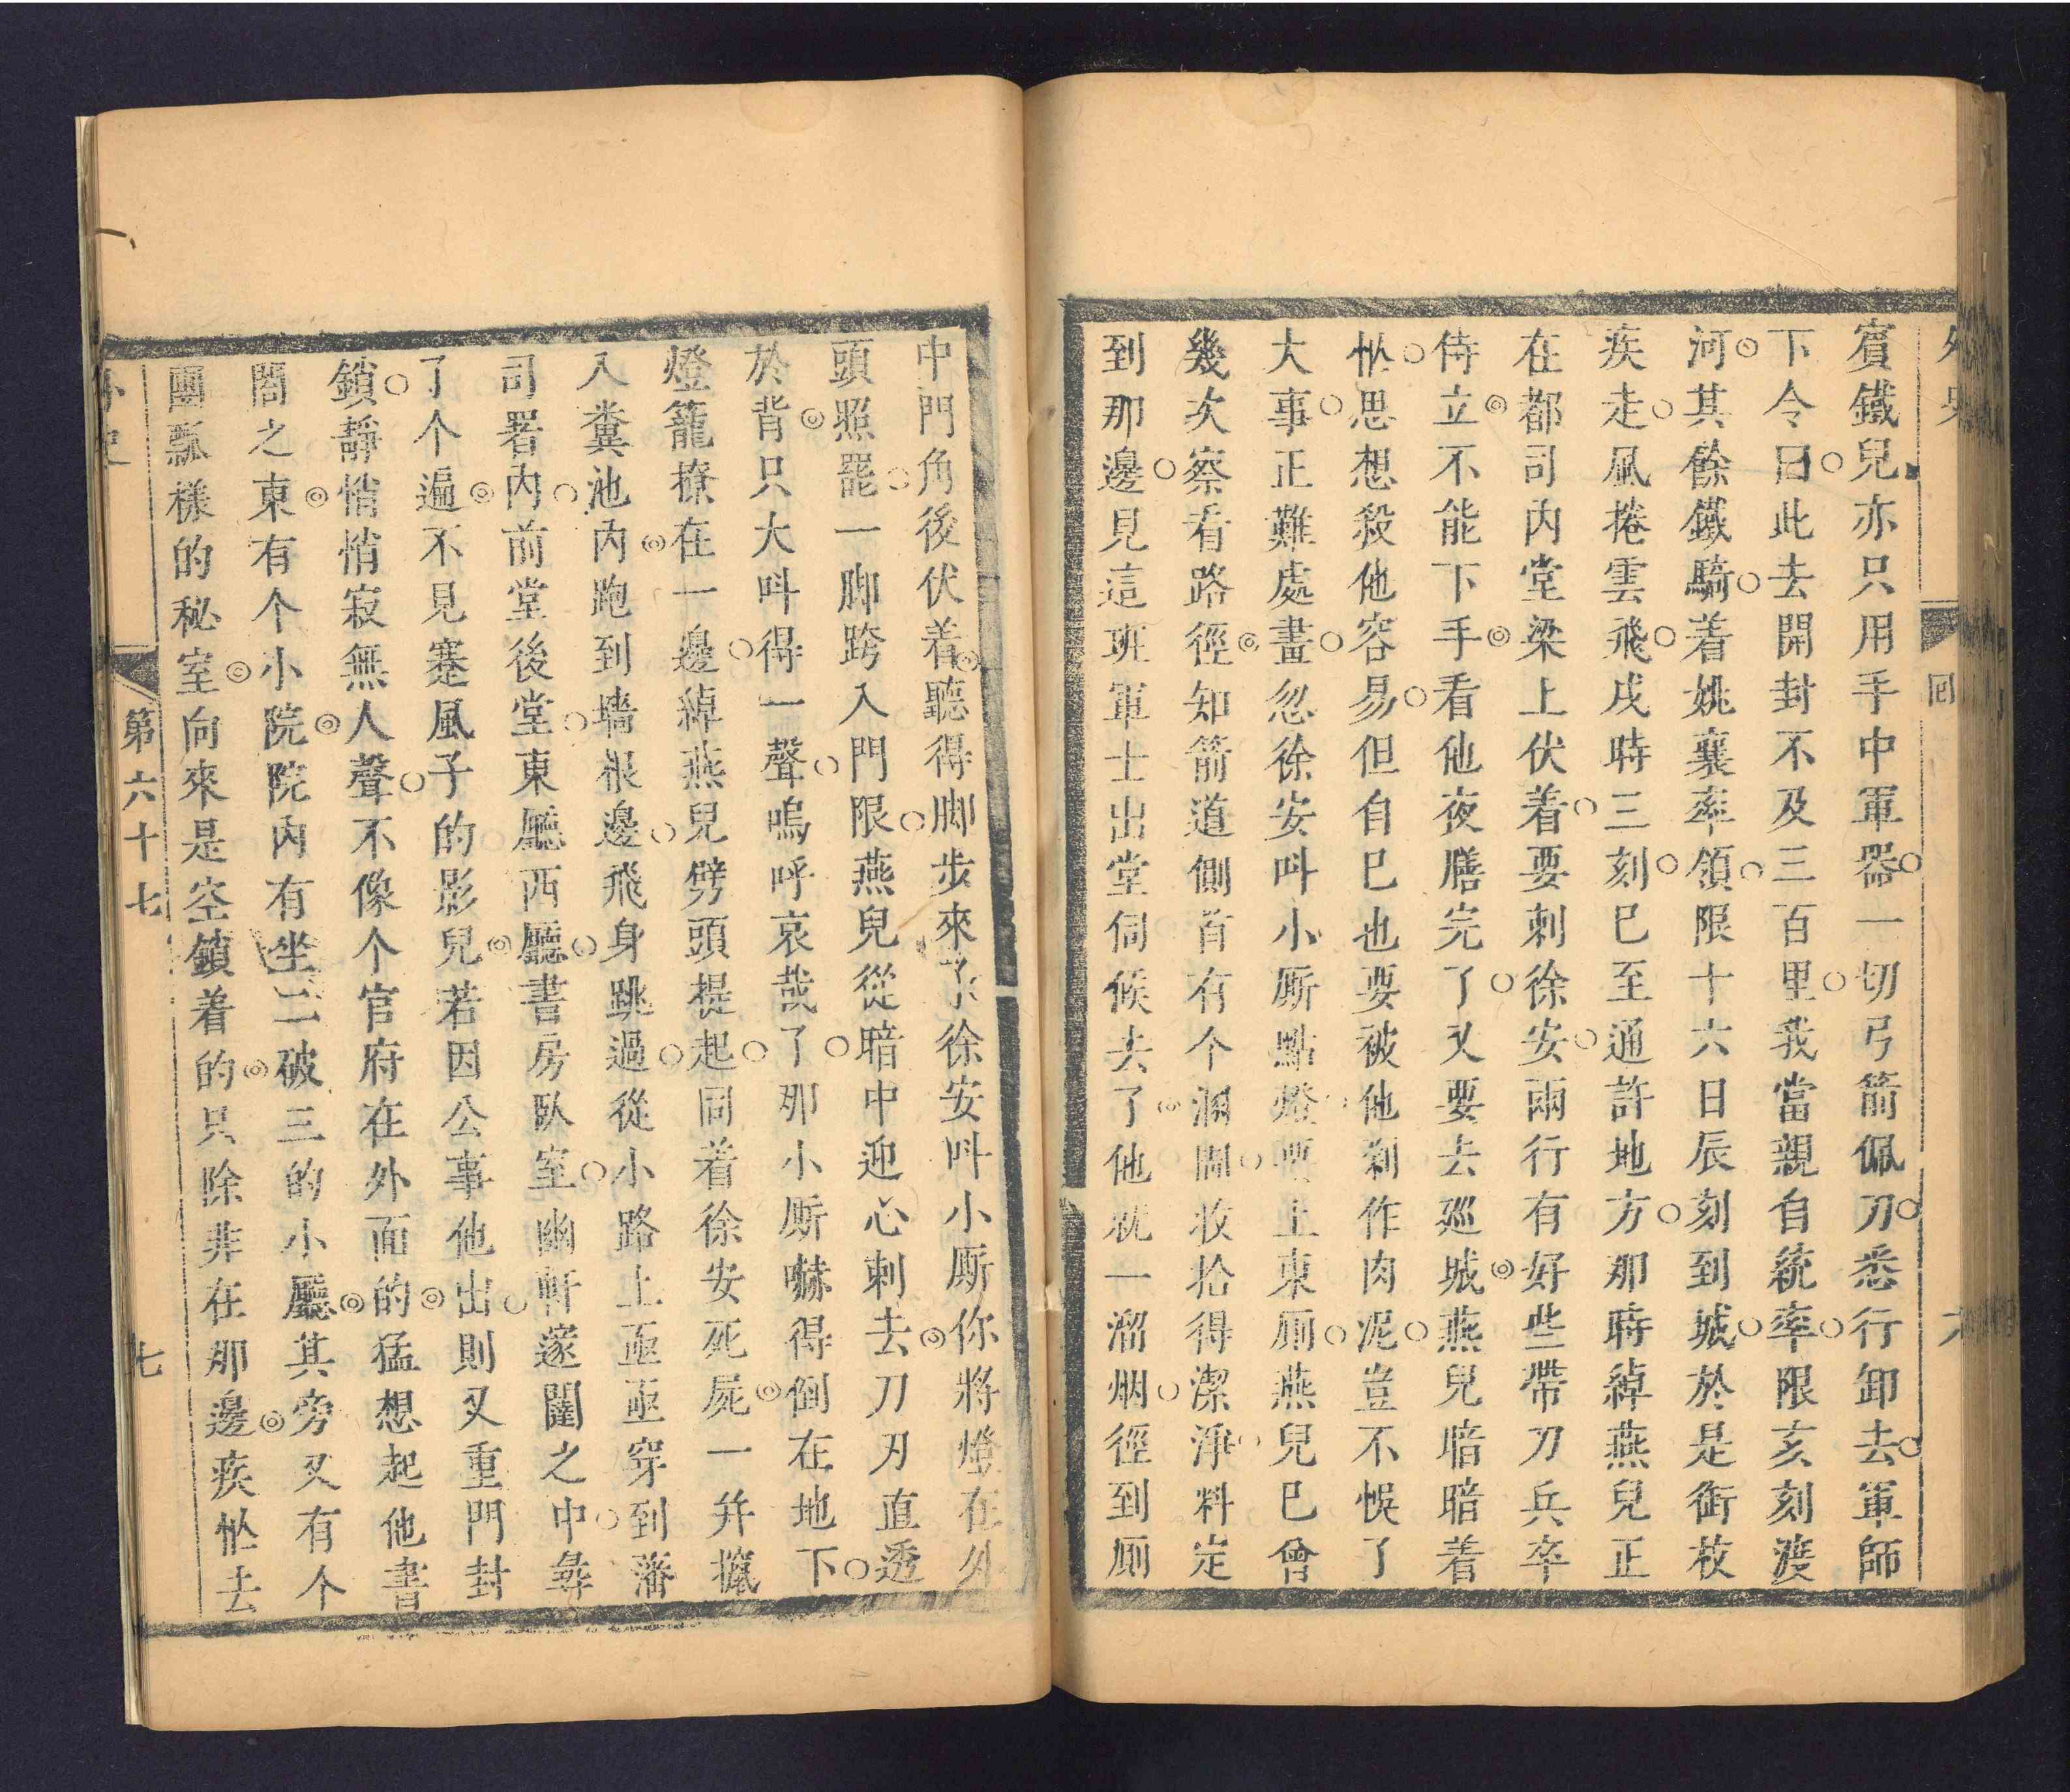 外史
回
六
賔鐵兒亦只用手中軍器一切弓箭佩刀悉行卸去軍師
下令曰此去開封不及三百里我當親自統率限亥刻渡
河其餘鐵騎着姚襄率領限十六日辰刻到城於是銜枚
疾走風捲雲飛戌時三刻巳至通許地方那時綽燕兒正
在都司內堂梁上伏着要刺徐安兩行有好些帶刀兵卒
侍立不能下手看他夜膳完了又要去廵城燕兒暗暗着
忙思想殺他容易但自巳也要被他剁作肉泥豈不悞了
大事正難處畫忽徐安呌小厮點燈要上東厠燕兒巳曾
幾次察看路徑知箭道側首有个溷圊收拾得潔淨料定
到那邊見這班軍士出堂伺候去了他就一溜烟徑到厠
中門角後伏着聽得脚步來了徐安呌小厮你將燈在外
頭照罷一脚跨入門限燕兒從暗中迎心刺去刀刃直透
於背只大呌得一聲嗚呼哀哉了那小厮嚇得倒在地下
燈籠撩在一邊綽燕兒劈頭提起同着徐安死屍一并攛
入糞池內跑到墻根邊飛身跳過從小路上亟亟穿到藩
司署內前堂後堂東廳西廳書房臥室幽軒邃闥之中彜
了个遍不見蹇風子的影兒若因公事他出則又重門封
鎖靜悄悄寂無人聲不像个官府在外面的猛想起他書
閤之東有个小院院內有坐二破三的小廳其旁又有个
團瓢樣的秘室向來是空鎖着的只除非在那邊疾忙去
外史
第六十七
七